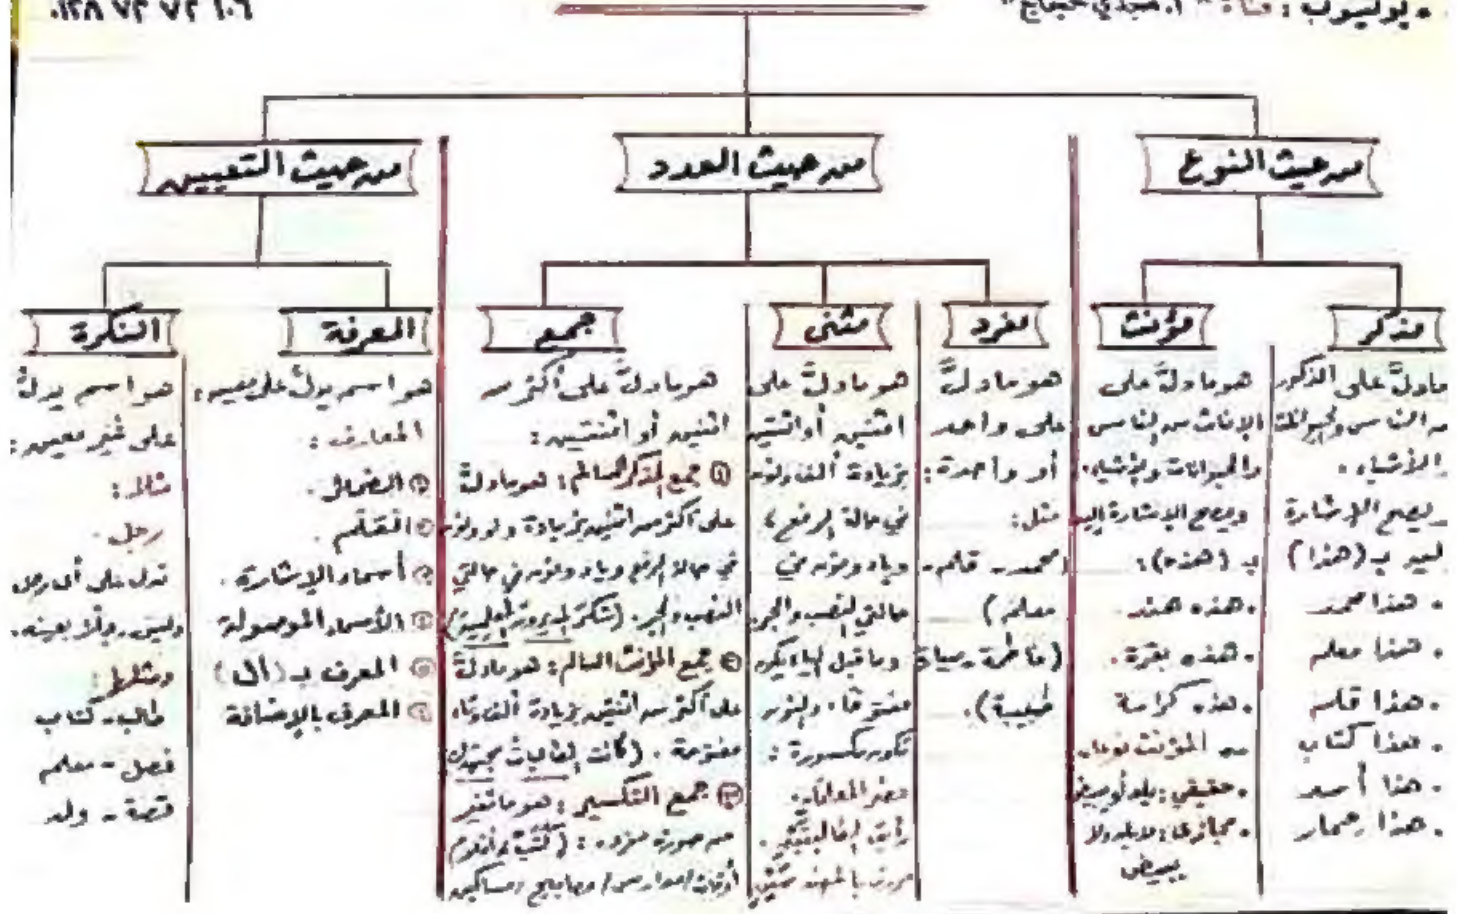 • يوتيوب : قناة " أ. مجدي حجاج "
من حيث النوع
مذكر
مادلّ على الذكور
من الناس والحيوانات
والأشياء .
ويصح الإشارة
إليه بـ (هذا)
• هذا محمد
• هذا معلم
• هذا قلم
• هذا كتاب
• هذا أسد
• هذا حمار
مؤنث
هو مادلّ على
الإناث من الناس
والحيوانات والأشياء.
ويصح الإشارة إليه
بـ (هذه) :
• هذه هند .
• هذه بقرة .
• هذه كراسة
المؤنث نوعان
• حقيقي : يلد أو يبيض
• مجازي : لا يلد ولا
يبيض
من حيث العدد
مفرد
هو مادلّ
على واحد
أو واحدة :
مثل :
(محمد - قلم -
معلم)
(فاطمة -
طبيبة) .
مثنى
هو مادلّ على
اثنين أو اثنتين
بزيادة ألف ونون
في حالة الرفع ،
وياء ونون في
حالتي النصب والجر
وما قبل الياء يكون
مفتوحًا ، والنون
تكون مكسورة :
حضر المعلمان.
رأيت الطالبتين .
جمع
هو مادلّ على أكثر من
اثنين أو اثنتين :
① جمع المذكر السالم : هو مادلّ
على أكثر من اثنين بزيادة واو ونون
في حالة الرفع وياء ونون في حالتي
النصب والجر .
② جمع المؤنث السالم : هو مادلّ
على أكثر من اثنتين بزيادة ألف وتاء
مفتوحة . (كانت الطالبات
③ جمع التكسير : هو ما تغير
من صورة مفرده : (كتب / أقلام /
/ مدارس / مصابيح / مساكين
من حيث التعيين
المعرفة
هو اسم يدل على معين :
المعارف :
① الضمائر .
② العَلَم .
③ أسماء الإشارة .
④ الأسماء الموصولة
⑤ المعرف بـ (ال)
⑥ المعرف بالإضافة
النكرة
هو اسم يدل
على غير معين :
مثال :
رجل .
تدل على أي رجل
وليس رجلًا بعينه.
ومثلها :
طالب - كتاب
فصل - معلم
قصة - ولد